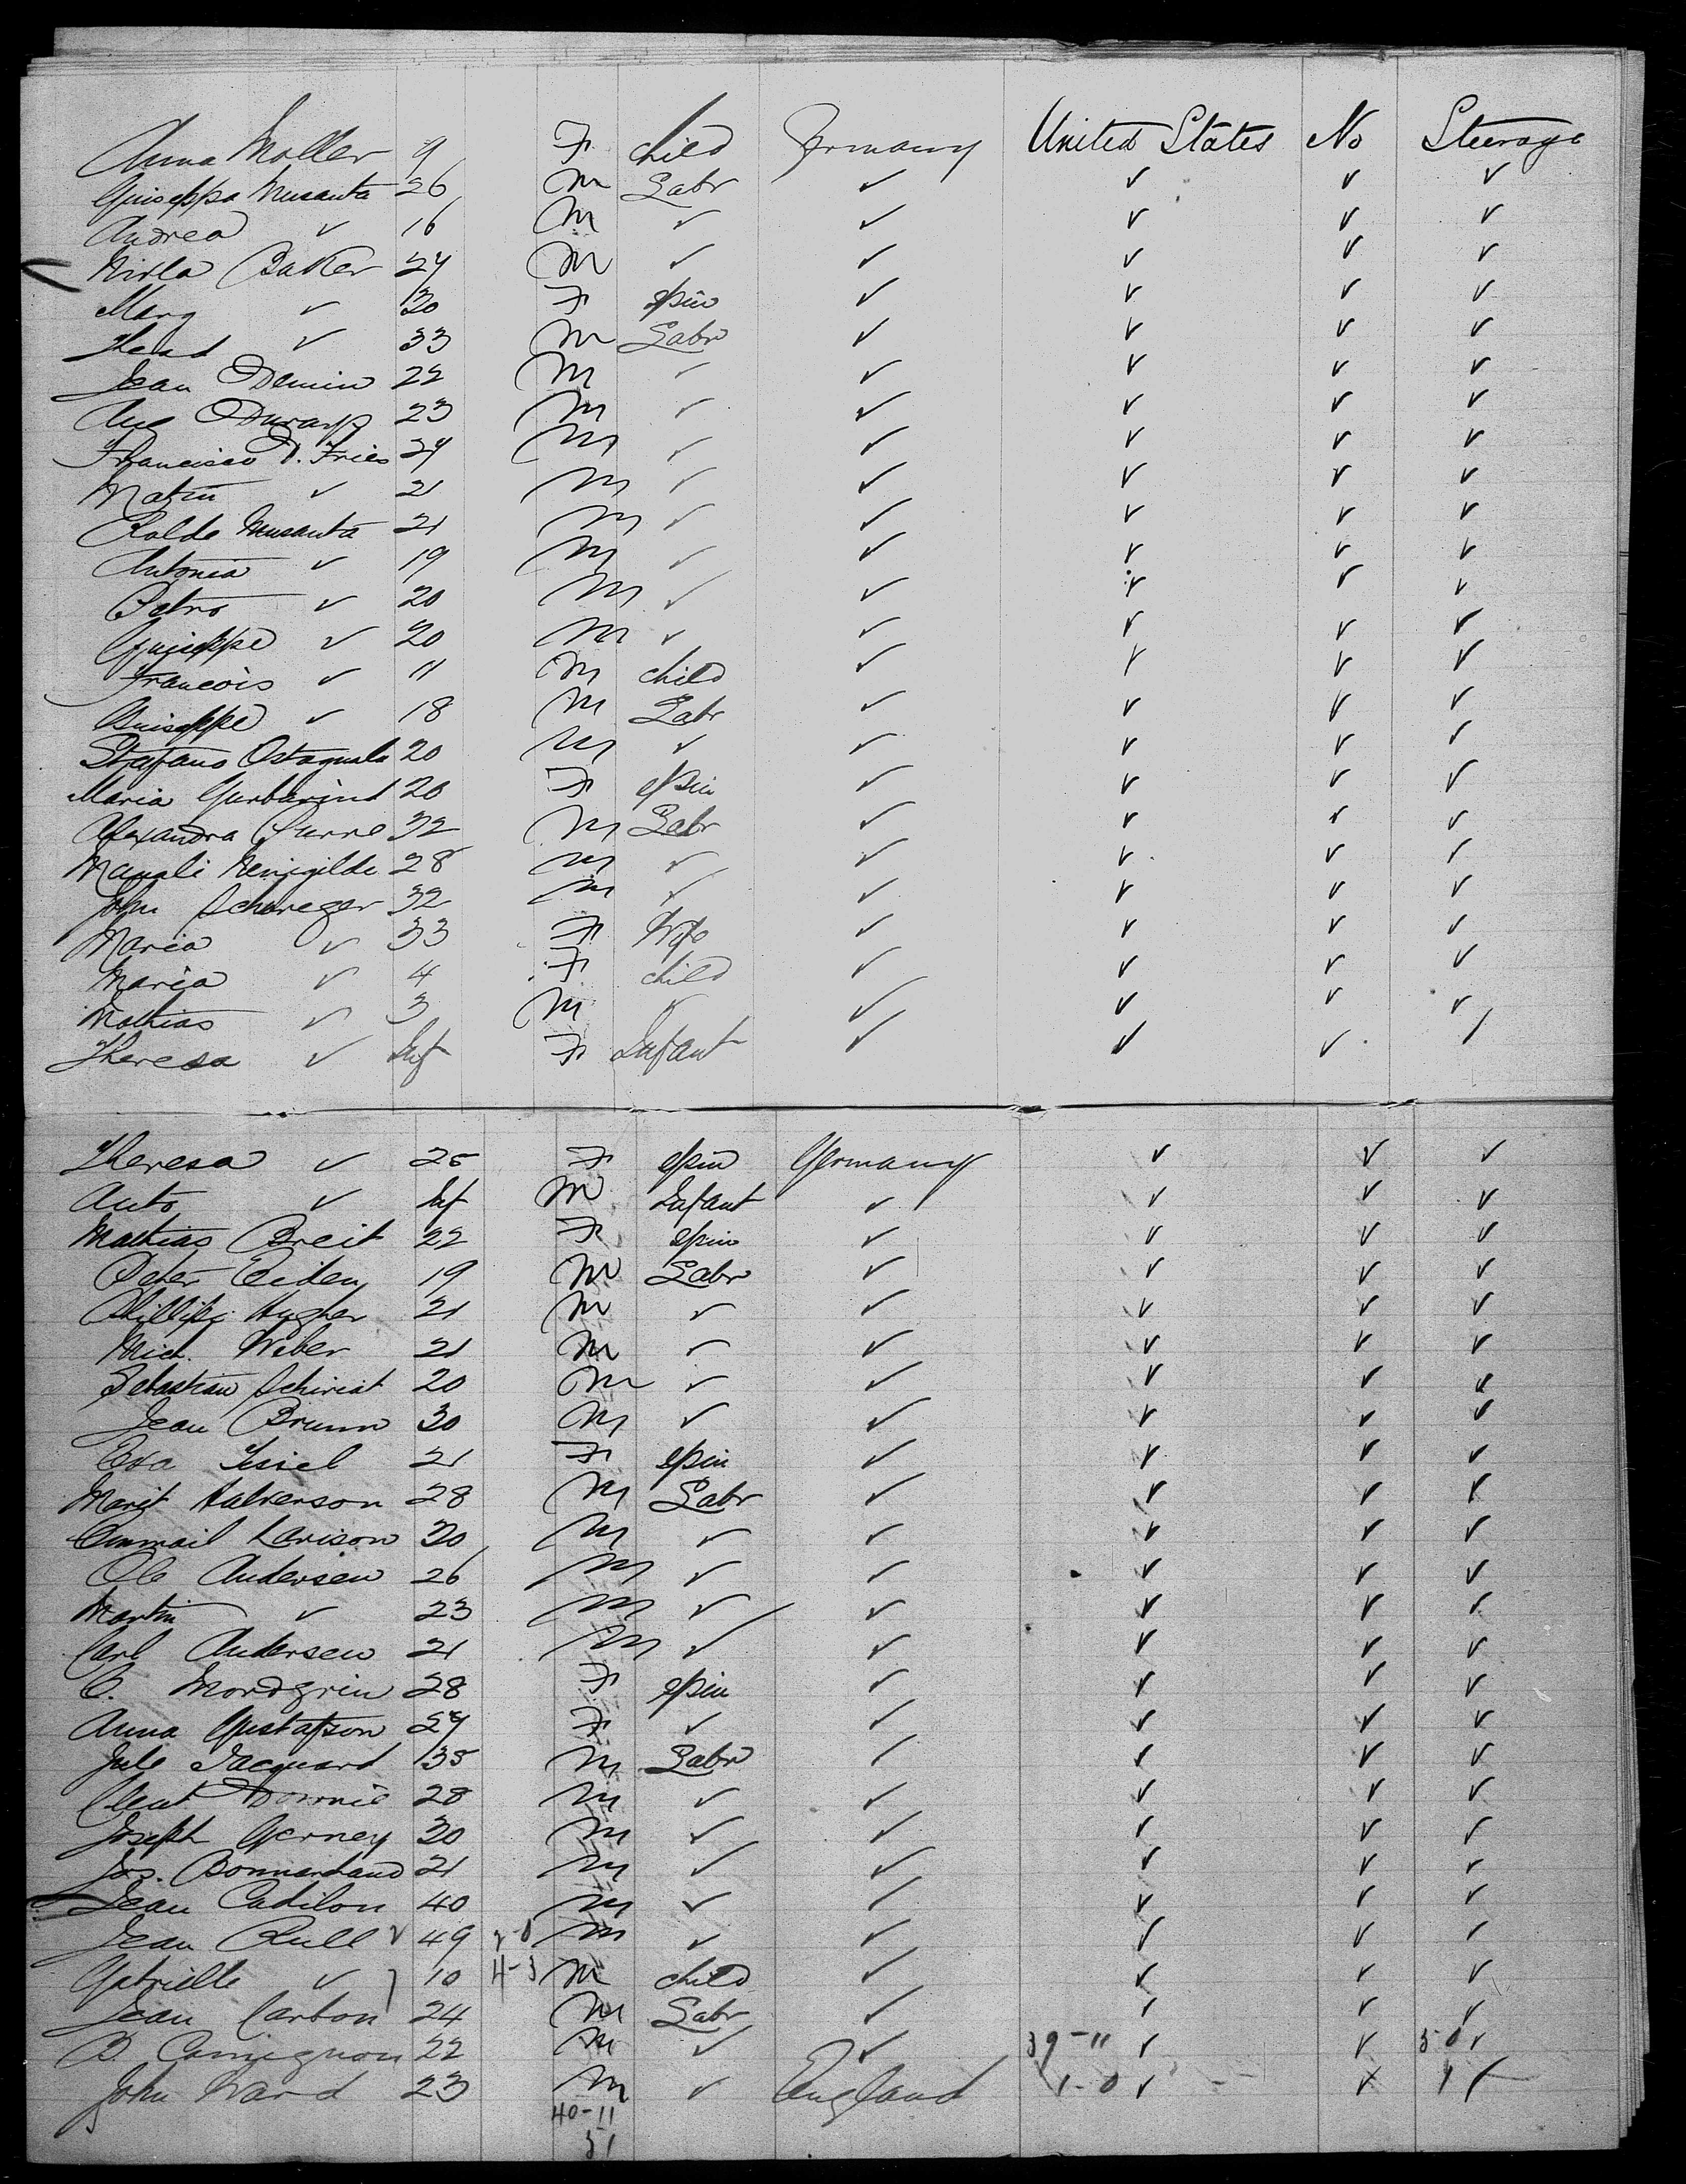 Anna Moller 9 F child Germany United States No Steerage
Guiseppa Musanta 26 M Labr ✓ ✓ ✓ ✓
Andrea ✓ 16 M ✓ ✓ ✓ ✓ ✓
Baker 24 M ✓ ✓ ✓ ✓ ✓
Mary ✓ 30 F spin ✓ ✓ ✓ ✓
✓ 33 M Labr ✓ ✓ ✓ ✓
Jean Demin 22 M ✓ ✓ ✓ ✓ ✓
23 M ✓ ✓ ✓ ✓ ✓
Francisco D. Fries 24 M ✓ ✓ ✓ ✓ ✓
✓ 21 M ✓ ✓ ✓ ✓ ✓
Musanta 21 M ✓ ✓ ✓ ✓ ✓
Antonia ✓ 19 M ✓ ✓ ✓ ✓ ✓
Petro ✓ 20 M ✓ ✓ ✓ ✓ ✓
Guiseppe ✓ 20 M ✓ ✓ ✓ ✓ ✓
Francois ✓ 11 M child ✓ ✓ ✓ ✓
Guiseppe ✓ 18 M Labr ✓ ✓ ✓ ✓
Stafano Ostagnala 20 M ✓ ✓ ✓ ✓ ✓
Maria 20 F spin ✓ ✓ ✓ ✓
Alexandra 32 M Labr ✓ ✓ ✓ ✓
28 M ✓ ✓ ✓ ✓ ✓
John Schweger 32 M ✓ ✓ ✓ ✓ ✓
Maria ✓ 33 F Wife ✓ ✓ ✓ ✓
Maria ✓ 4 F child ✓ ✓ ✓ ✓
Mathias ✓ 3 M ✓ ✓ ✓ ✓ ✓
Theresa ✓ Inf F Infant ✓ ✓ ✓ ✓
Theresa ✓ 25 F spin Germany ✓ ✓ ✓
Anto ✓ Inf M Infant ✓ ✓ ✓ ✓
Mathias Breit 22 F spin ✓ ✓ ✓ ✓
Peter Eiden 19 M Labr ✓ ✓ ✓ ✓
Phillipi 21 M ✓ ✓ ✓ ✓ ✓
Mich. Weber 21 M ✓ ✓ ✓ ✓ ✓
Sebastian 20 M ✓ ✓ ✓ ✓ ✓
Jean Brunn 30 M ✓ ✓ ✓ ✓ ✓
Eva 21 F spin ✓ ✓ ✓ ✓
Marit Halverson 28 M Labr ✓ ✓ ✓ ✓
Larison 30 M ✓ ✓ ✓ ✓ ✓
Ole Andersen 26 M ✓ ✓ ✓ ✓ ✓
Martin ✓ 23 M ✓ ✓ ✓ ✓ ✓
Carl Andersen 21 M ✓ ✓ ✓ ✓ ✓
C. Nordgrin 28 F spin ✓ ✓ ✓ ✓
Anna Gustafson 24 F ✓ ✓ ✓ ✓ ✓
Jule Jacquard 35 M Labr ✓ ✓ ✓ ✓
28 M ✓ ✓ ✓ ✓ ✓
Joseph Gerney 30 M ✓ ✓ ✓ ✓ ✓
Jos. Bonnardand 21 M ✓ ✓ ✓ ✓ ✓
Jean Cadilon 40 M ✓ ✓ ✓ ✓ ✓
Jean Rull ✓ 49 M ✓ ✓ ✓ ✓ ✓
Gabrielle ✓ 10 M child ✓ ✓ ✓ ✓
Jean Carbon 24 M Labr ✓ ✓ ✓ ✓
22 M ✓ ✓ 39-11 ✓ ✓
John Ward 23 M ✓ England 1-0 ✓ ✓
40-11
51